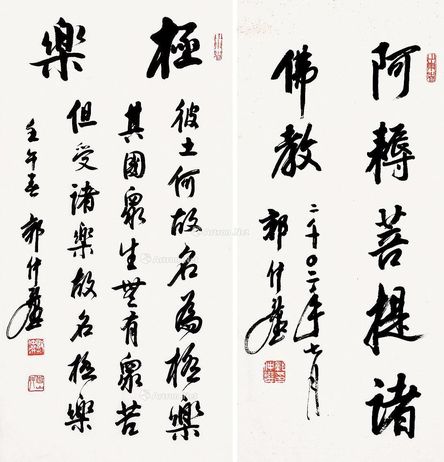 阿耨菩提諸
佛教
二千〇二年七月
郭仲選
極樂
彼土何故名為極樂
其國眾生無有眾苦
但受諸樂故名極樂
壬午春 郭仲選